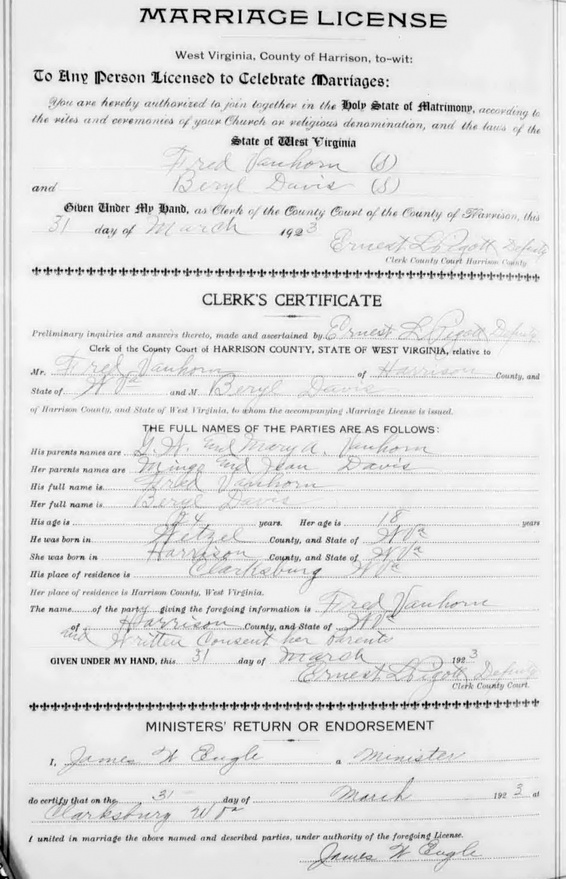 MARRIAGE LICENSE
West Virginia, County of Harrison, to-wit:
To Any Person Licensed to Celebrate Marriages:
You are hereby authorized to join together in the Holy State of Matrimony, according to
the rites and ceremonies of your Church or religious denomination, and the laws of the
State of West Virginia
Fred Vanhorn (S)
and Beryl Davis (S)
Given Under My Hand, as Clerk of the County Court of the County of Harrison, this
31 day of March 1923
Ernest L Pigott Deputy
Clerk County Court Harrison County
CLERK'S CERTIFICATE
Preliminary inquiries and answers thereto, made and ascertained by Ernest L Pigott Deputy
Clerk of the County Court of HARRISON COUNTY, STATE OF WEST VIRGINIA, relative to
Mr. Fred Vanhorn of Harrison County, and
State of W Va and M Beryl Davis
of Harrison County, and State of West Virginia, to whom the accompanying Marriage License is issued.
THE FULL NAMES OF THE PARTIES ARE AS FOLLOWS:
His parents names are And Mary A. Vanhorn
Her parents names are Mingo And Jean Davis
His full name is Fred Vanhorn
Her full name is Beryl Davis
His age is 24 years. Her age is 18 years
He was born in Wetzel County, and State of W Va
She was born in Harrison County, and State of W Va
His place of residence is Clarksburg W Va
Her place of residence is Harrison County, West Virginia.
The name......of the party giving the foregoing information is Fred Vanhorn
of Harrison County, and State of W Va
and Written Consent her parents
GIVEN UNDER MY HAND, this 31 day of March 1923
Ernest L Pigott Deputy
Clerk County Court.
MINISTERS' RETURN OR ENDORSEMENT
I, James W Engle a Minister
do certify that on the 31 day of March 1923 at
Clarksburg W Va
I united in marriage the above named and described parties, under authority of the foregoing License.
James W Engle